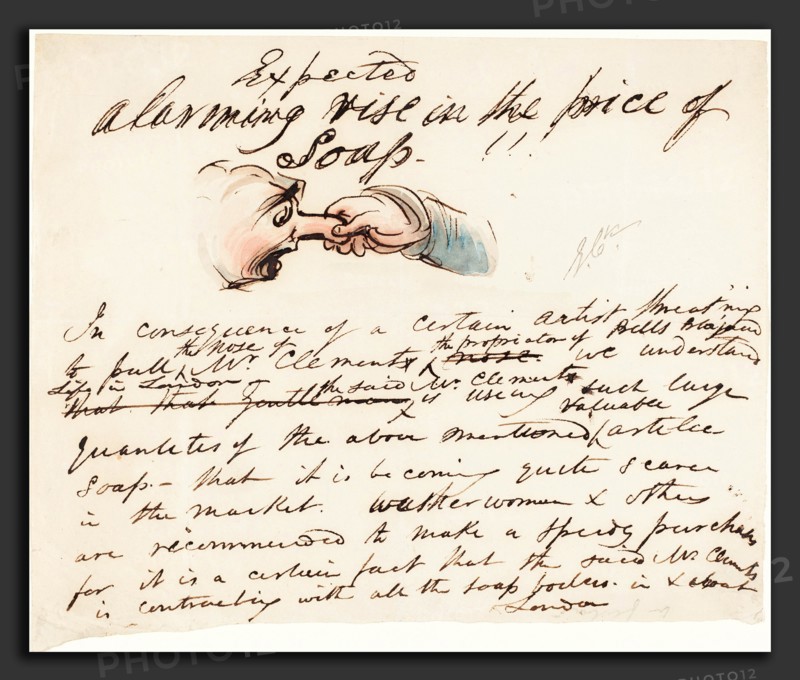 Expected
alarming rise in the price of
Soap - !!!
G. Ck
In consequence of a certain artist threat'ning
to pull the nose of Mr. Clements the proprietor of Bells Life in London nose. we understand
that that gentleman the said Mr. Clements is using such large
quantities of the above mentioned valuable article
Soap - that it is becoming quite scarce
in the market. Washerwomen & others
are recommended to make a speedy purchase
for it is a certain fact that the said Mr. Clements
is contracting with all the soap boilers. in & about
London
PHOTO12
PHOTO12
PHOTO12